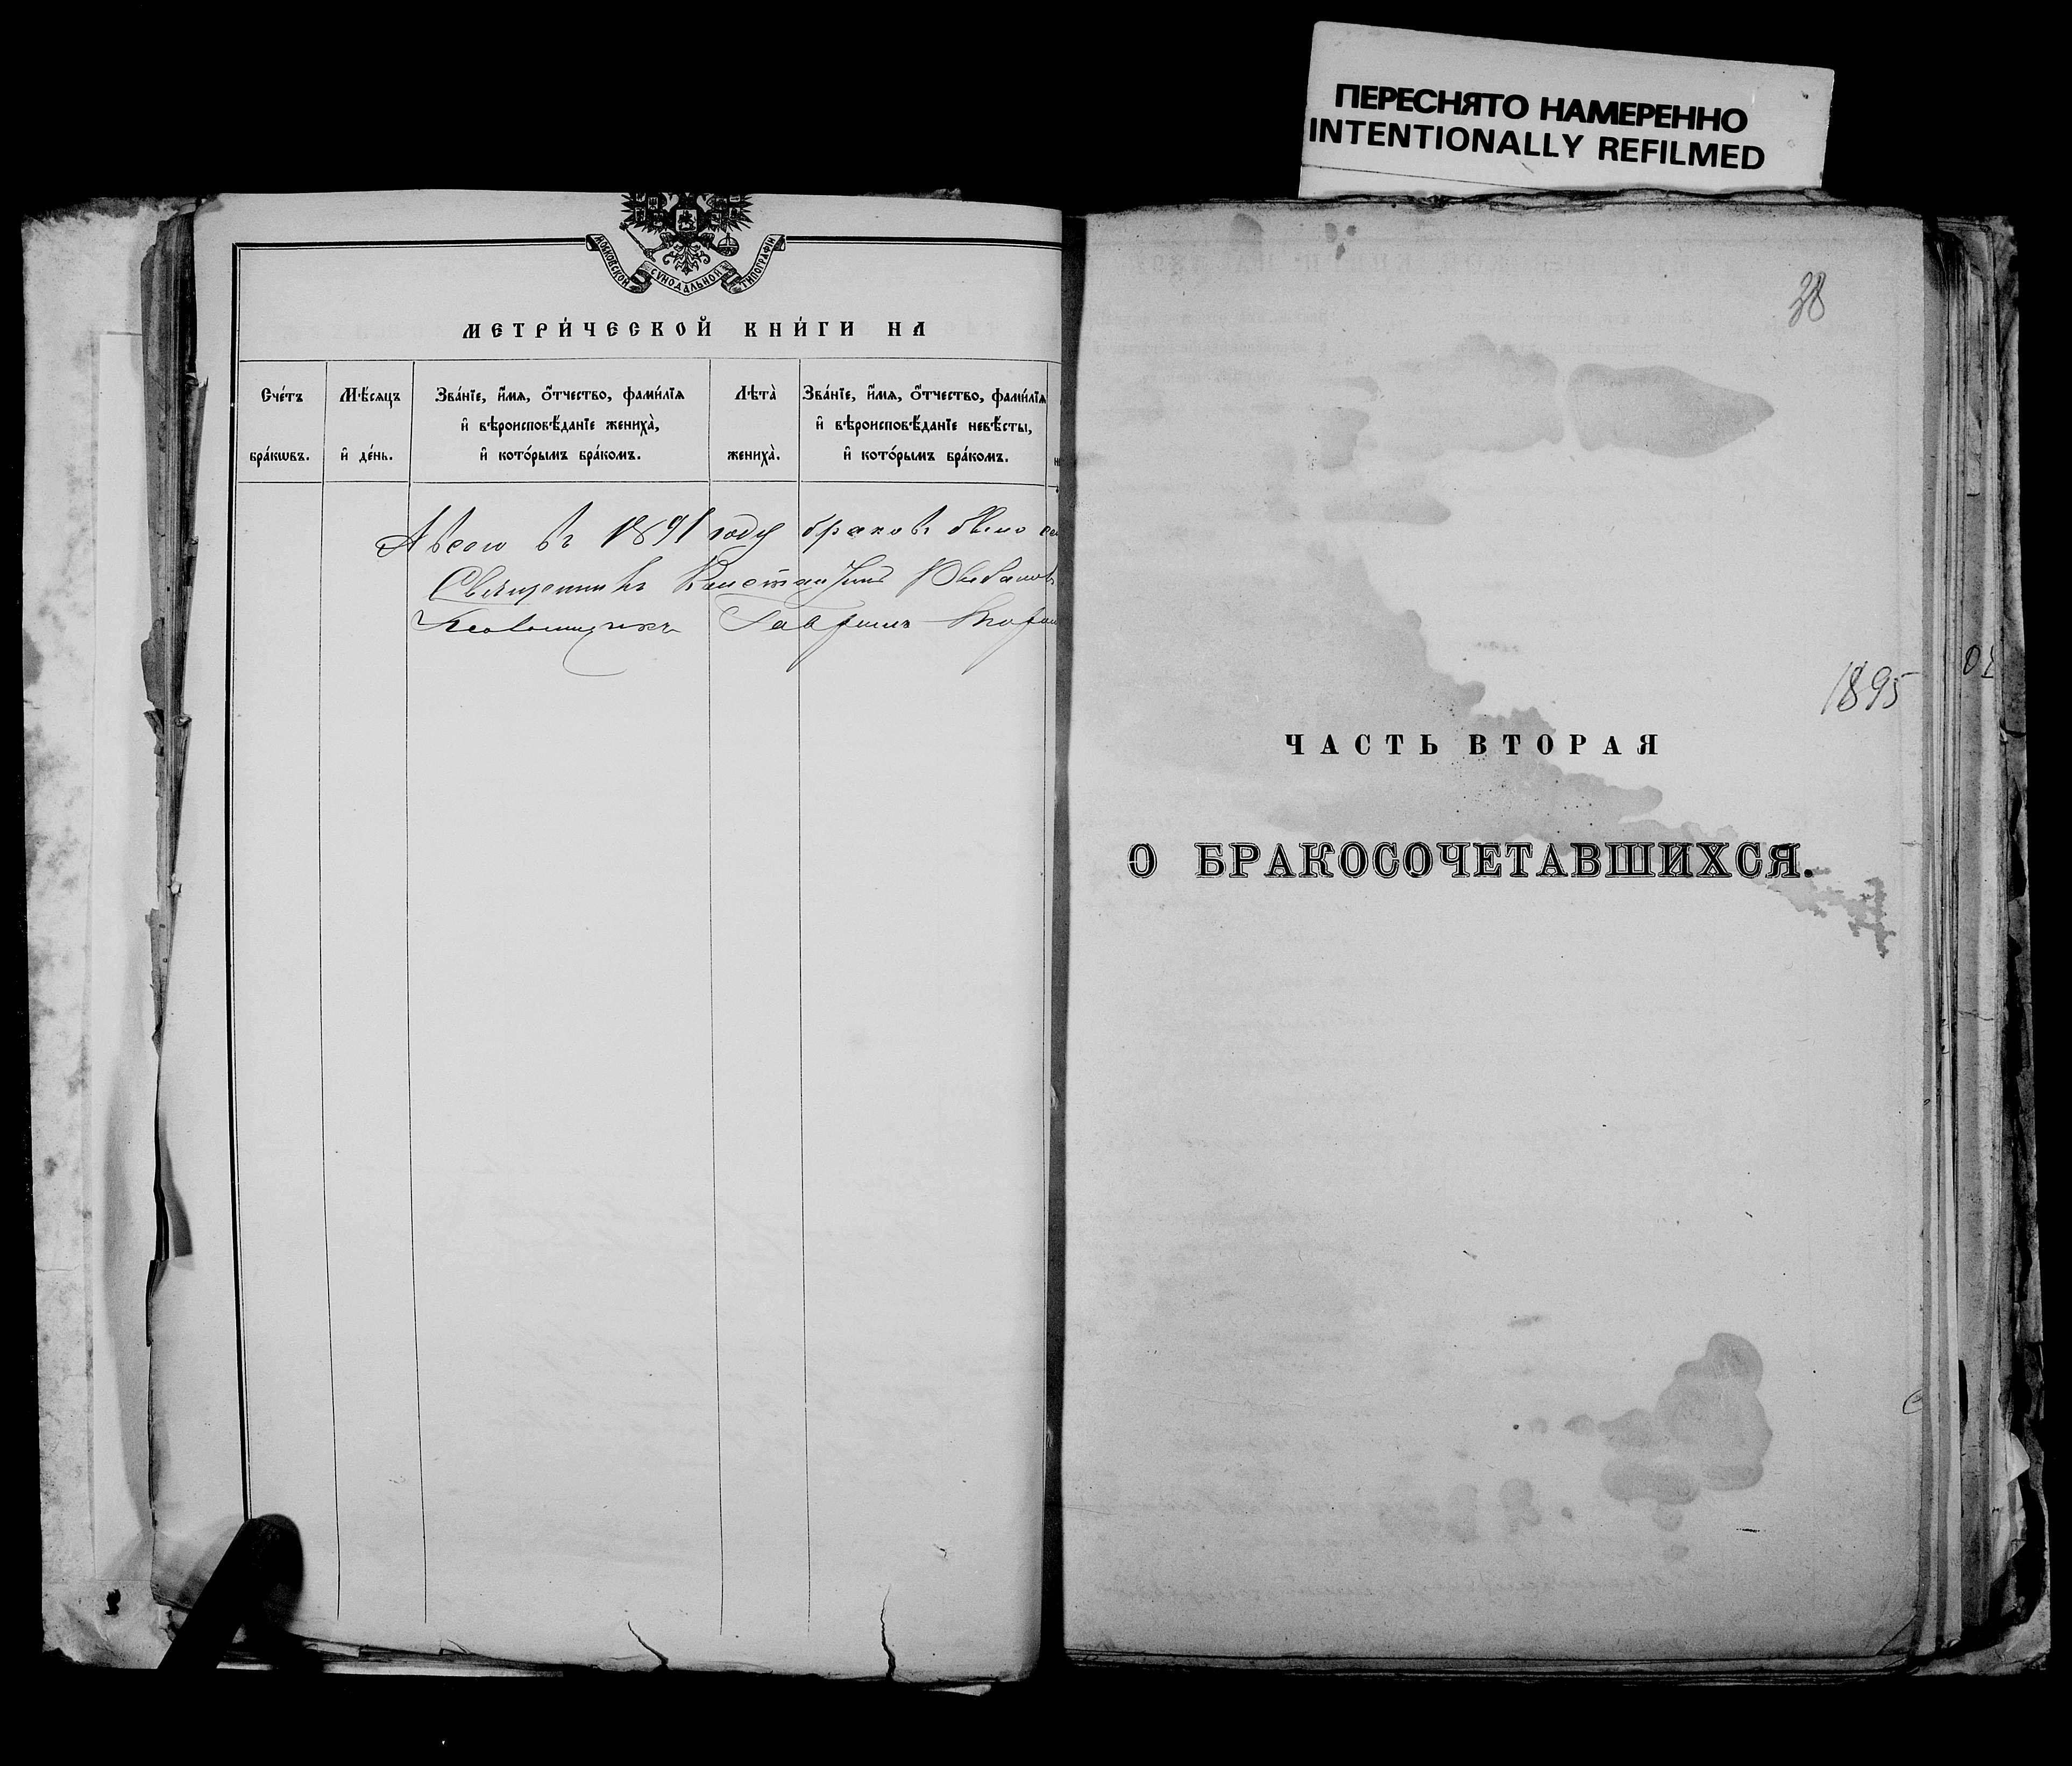 ПЕРЕСНЯТО НАМЕРЕННО
INTENTIONALLY REFILMED
МОСКОВСКОЙ СѴНОДАЛЬНОЙ ТИПОГРАФІИ
МЕТРИ́ЧЕСКОЙ КНИ́ГИ НА
Сче́тъ
бра́кѡвъ.
Мѣ́сяцъ
и҆ де́нь.
Зва́нїе, и҆́мѧ, ѻ҆́тчество, фами́лїѧ
и҆ вѣроисповѣ́данїе жениха̀,
и҆ кото́рымъ бра́комъ.
Лѣта̀
жениха̀.
Зва́нїе, и҆́мѧ, ѻ҆́тчество, фами́лїѧ
и҆ вѣроисповѣ́данїе невѣ́сты,
и҆ кото́рымъ бра́комъ.
А всего въ 1891 году браковъ было
Священникъ Константинъ
Псаломщикъ Гавріилъ
38
1895
ЧАСТЬ ВТОРАЯ
О БРАКОСОЧЕТАВШИХСЯ.